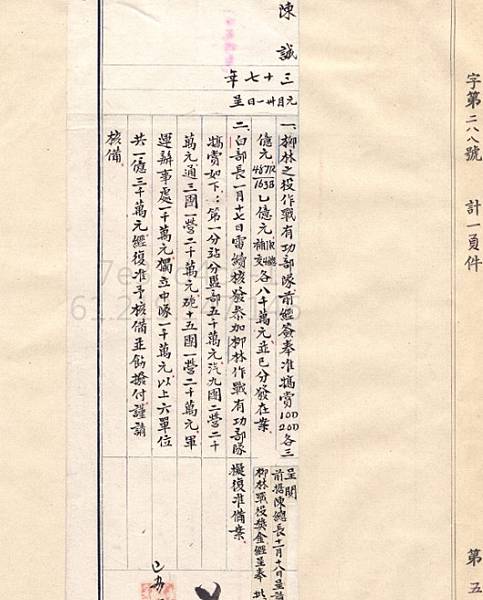 字第二八八號　計一頁件
第五
陳誠
三十七年
元月卅一日呈
一、柳林之役作戰有功部隊前經簽奉准犒賞10D 20D各三
億元48TR 163B乙億元補交各八千萬元並已分發在案
二、白部長一月十七日電續核發參加柳林作戰有功部隊
犒賞如下：第一分站分監部五千萬元汽九團二營二千
萬元通三團一營二千萬元砲十五團一營二千萬元軍
運辦事處一千萬元獨立中隊一千萬元以上六單位
共一億三千萬元經復准予核備並飭撥付謹請
核備
呈閱
前據陳總長十一月十八日呈
柳林戰役獎金經呈奉
擬復准備案